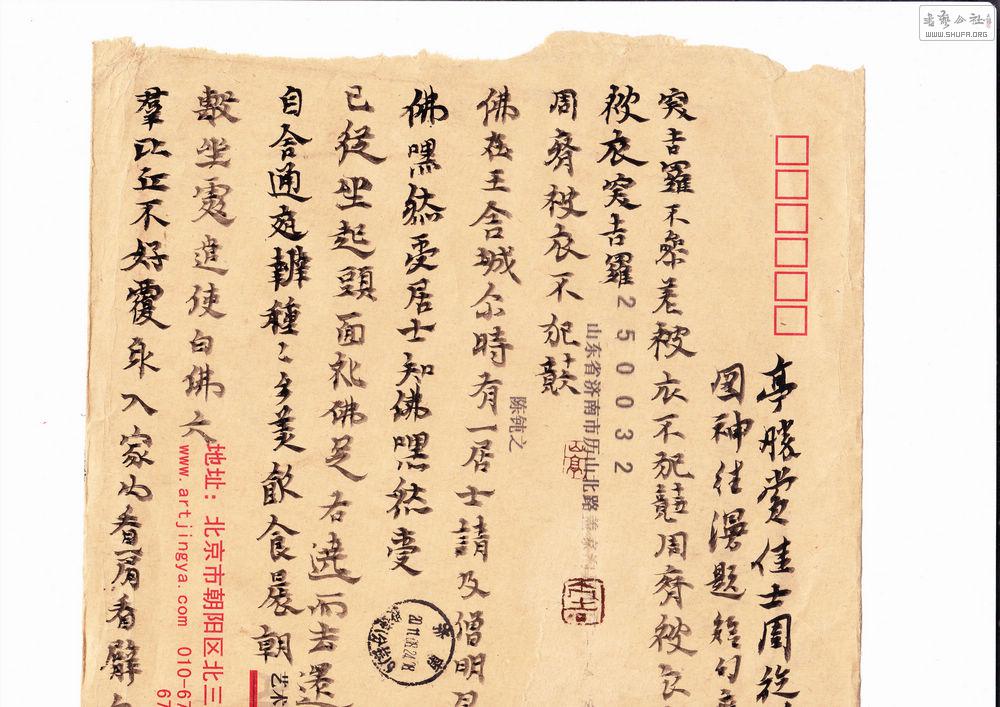 亭勝賞佳士周旋
图神往漫题短句
突吉羅不參差被衣不犯竟周齊被衣
被衣突吉羅
周齊被衣不犯十六竟
佛在王舍城尒時有一居士請及僧明日
佛嘿然受居士知佛嘿然受
已從坐起頭面礼佛足右遶而去還
自舍通庭辦種々多美飲食晨朝
敷坐處遣使白佛
羣比丘不好覆身入家内看肩看臂
250032
山东省济南市历山北路
陈钝之
地址：北京市朝阳区北三
www.artjingya.com 010-67
67
艺术
WWW.SHUFA.ORG